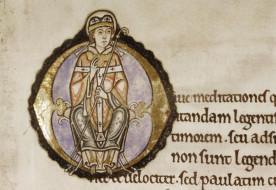 ue meditationes q
tandam legentis
timorem. seu adsi
non sunt legend
velociter. sed paulatim c